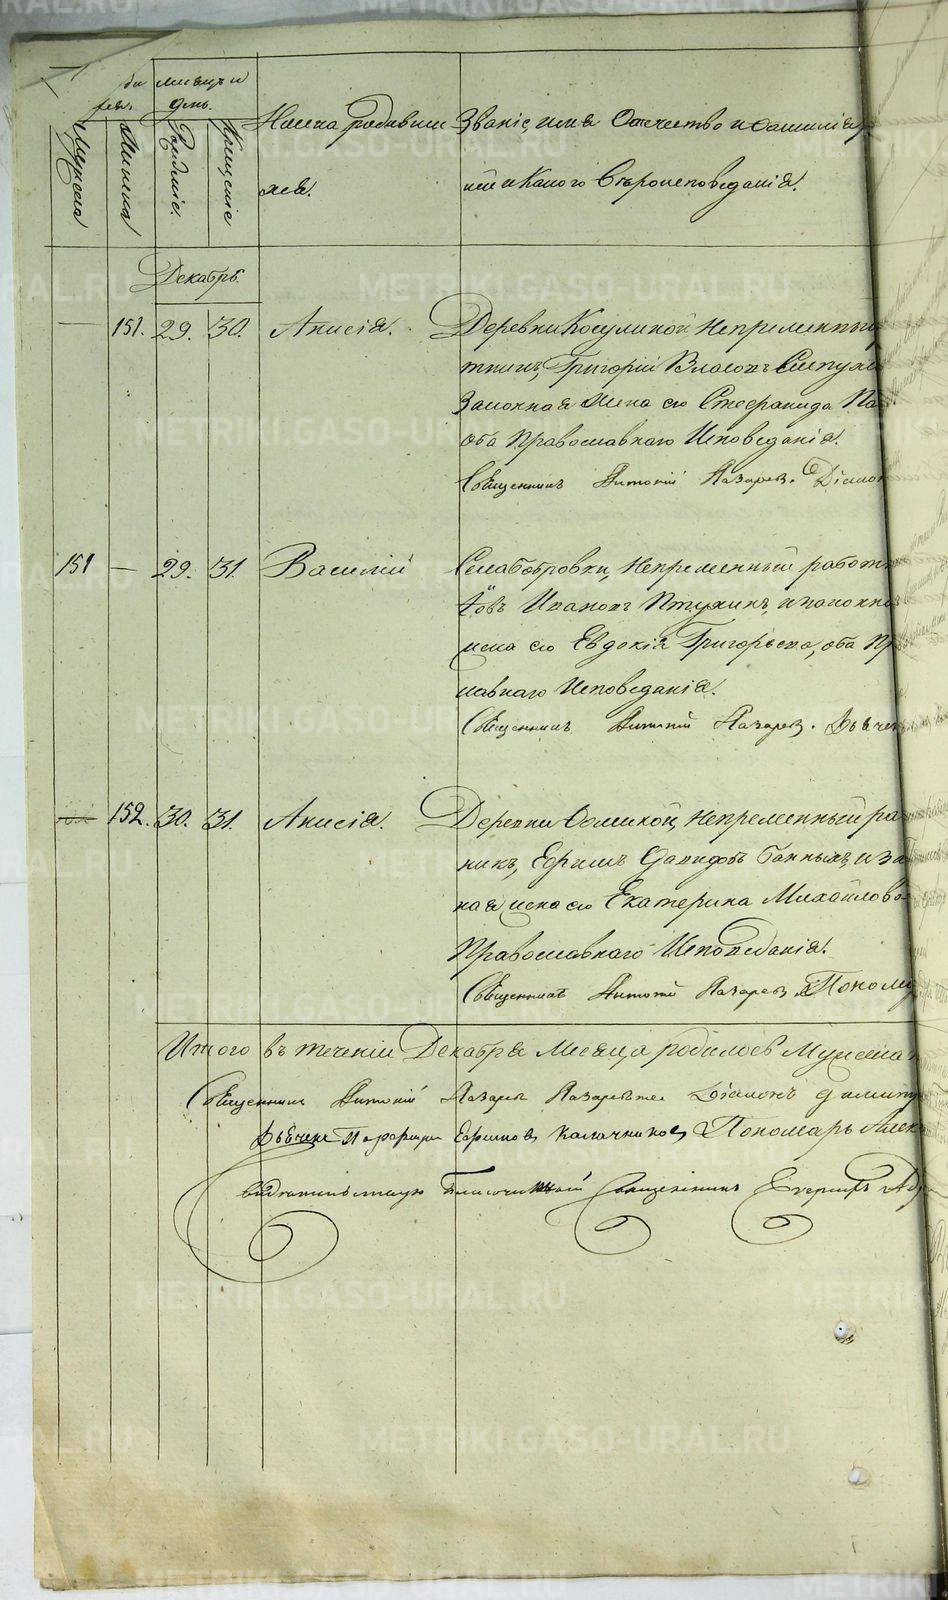 мѣсяцъ и
день.
Мужеска
Женска
Рожденіе.
Крещеніе
Имена родивших
ся.
Званіе, имя Отечество и Фамилія
и какого Вѣроисповеданія.
Декабрь.
151. 29. 30. Анисія. Деревни Косулиной Непременный
тникъ, Григорій Власовъ
Законная Жена его Стефанида Па
оба Православнаго Исповеданія.
Священникъ Антоній Лазарев. Діакон
151 — 29. 31. Василий Села Бобровки, Непременный работ
Иванов Птухинъ, и законна
жена его Евдокія Григорьева, оба Пр
славнаго Исповеданія.
Священникъ Антоній Лазарев. Дьячек
152. 30. 31. Анисія. Деревни Фоминой, Непременный ра
никъ, Ефимъ Давидовъ Банныхъ, и за
ная жена его Екатерина Михайлова
Православнаго Исповеданія.
Священникъ Антоній Лазарев. Поном
Итого въ теченіи Декабря Месяца родилось Мужеска
Священникъ Антоній Лазаревъ Діаконъ Димит
Дьячекъ Порфирий Ефимов Калачников Пономарь Алек
Благочинный Священникъ
METRIKI.GASO-URAL.RU